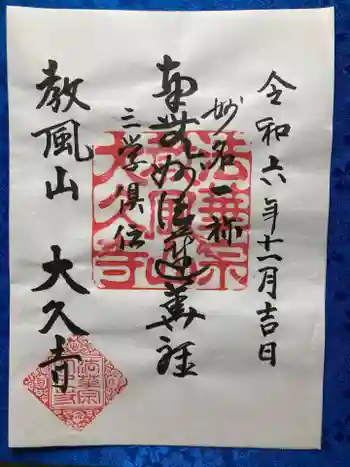 令和六年十一月吉日
妙名一称
南無妙法蓮華経
三学倶伝
教風山 大久寺
法華宗
教風山
大久寺